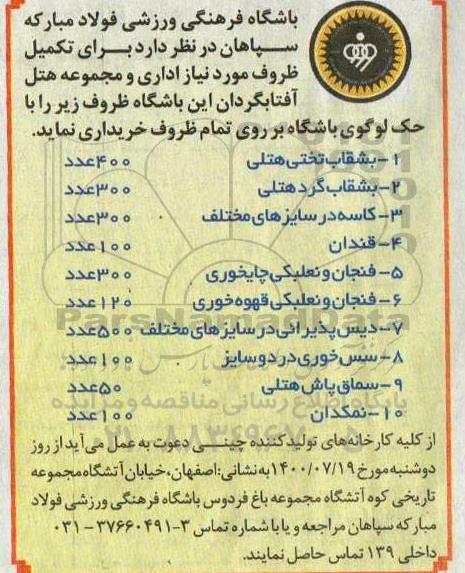 باشگاه فرهنگی ورزشی فولاد مبارکه
سپاهان در نظر دارد برای تکمیل
ظروف مورد نیاز اداری و مجموعه هتل
آفتابگردان این باشگاه ظروف زیر را با
حک لوگوی باشگاه بر روی تمام ظروف خریداری نماید.
۱- بشقاب تختی هتلی ۴۰۰ عدد
۲- بشقاب گرد هتلی ۳۰۰ عدد
۳- کاسه در سایزهای مختلف ۳۰۰ عدد
۴- قندان ۱۰۰ عدد
۵- فنجان و نعلبکی چایخوری ۳۰۰ عدد
۶- فنجان و نعلبکی قهوه خوری ۱۲۰ عدد
۷- دیس پذیرائی در سایزهای مختلف ۵۰۰ عدد
۸- سس خوری در دو سایز ۱۰۰ عدد
۹- سماق پاش هتلی ۵۰ عدد
۱۰- نمکدان ۱۰۰ عدد
از کلیه کارخانه‌های تولید کننده چینی دعوت به عمل می‌آید از روز
دوشنبه مورخ ۱۴۰۰/۰۷/۱۹ به نشانی: اصفهان، خیابان آتشگاه مجموعه
تاریخی کوه آتشگاه مجموعه باغ فردوس باشگاه فرهنگی ورزشی فولاد
مبارکه سپاهان مراجعه و یا با شماره تماس ۳-۳۷۶۶۰۴۹۱ - ۰۳۱
داخلی ۱۳۹ تماس حاصل نمایند.
ParsNamadData
پایگاه اطلاع رسانی مناقصه و مزایده